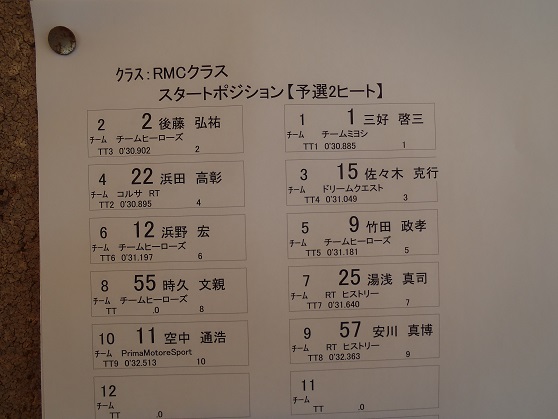 クラス：RMCクラス
スタートポジション【予選2ヒート】
2 2 後藤 弘祐
チーム チームヒーローズ
TT3 0'30.902 2
1 1 三好 啓三
チーム チームミヨシ
TT1 0'30.885 1
4 22 浜田 高彰
チーム コルサ RT
TT2 0'30.895 4
3 15 佐々木 克行
チーム ドリームクエスト
TT4 0'31.049 3
6 12 浜野 宏
チーム チームヒーローズ
TT6 0'31.197 6
5 9 竹田 政孝
チーム チームヒーローズ
TT5 0'31.181 5
8 55 時久 文親
チーム チームヒーローズ
TT .0 8
7 25 湯浅 真司
チーム RT ヒストリー
TT7 0'31.640 7
10 11 空中 通浩
チーム PrimaMotoreSport
TT9 0'32.513 10
9 57 安川 真博
チーム RT ヒストリー
TT8 0'32.363 9
12
チーム
TT .0
11
チーム
TT .0